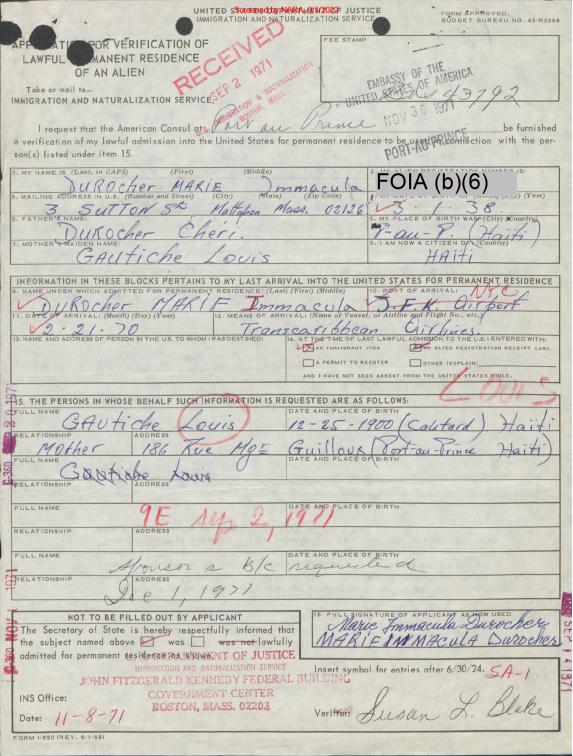 UNITED ST JUSTICE
IMMIGRATION AND NATURALIZATION SERVICE
FORM APPROVED,
BUDGET BUREAU NO. 43-R0266
FOR VERIFICATION OF
LAWFUL RESIDENCE
OF AN ALIEN
RECEIVED
SEP 2 1971
U.S. IMMIGRATION & NATURALIZATION
BOSTON, MASS.
FEE STAMP
EMBASSY OF THE
UNITED STATES OF AMERICA
NOV 30 1971
PORT-AU-PRINCE
43792
Take or mail to—
IMMIGRATION AND NATURALIZATION SERVICE,
I request that the American Consul at Port au Prince be furnished
a verification of my lawful admission into the United States for permanent residence to be connection with the per-
son(s) listed under item 15.
1. MY NAME IS (Last, in CAPS) (First) (Middle)
DUROCHER MARIE Immacula
FOIA (b)(6)
3. MAILING ADDRESS IN U.S. (Number and Street) (City) (State) (Zip Code)
3 SUTTON St Mattapan Mass. 02126
(Year)
3 1 38
5. FATHER'S NAME:
DUROCHER Chéri.
6. MY PLACE OF BIRTH WAS: (City) (Country)
P-au-P (Haïti)
7. MOTHER'S MAIDEN NAME:
GAUTICHE Louis
8. I AM NOW A CITIZEN OF: (Country)
HAITI
INFORMATION IN THESE BLOCKS PERTAINS TO MY LAST ARRIVAL INTO THE UNITED STATES FOR PERMANENT RESIDENCE
9. NAME UNDER WHICH ADMITTED FOR PERMANENT RESIDENCE: (Last) (First) (Middle)
DUROCHER MARIE Immacula
10. PORT OF ARRIVAL:
NYC
J.F.K. Airport
11. DATE OF ARRIVAL: (Month) (Day) (Year)
2-21-70
12. MEANS OF ARRIVAL: (Name of Vessel, or Airline and Flight No., etc.)
Transcaribbean Airlines.
13. NAME AND ADDRESS OF PERSON IN THE U.S. TO WHOM I WAS DESTINED:
14. AT THE TIME OF LAST LAWFUL ADMISSION TO THE U.S. I ENTERED WITH:
AN IMMIGRANT VISA
AN ALIEN REGISTRATION RECEIPT CARD
A PERMIT TO REENTER
OTHER (EXPLAIN)
AND I HAVE NOT BEEN ABSENT FROM THE UNITED STATES SINCE.
LOUIS
15. THE PERSONS IN WHOSE BEHALF SUCH INFORMATION IS REQUESTED ARE AS FOLLOWS:
FULL NAME
GAUTICHE Louis
DATE AND PLACE OF BIRTH
12-25-1900 (Cotitard) Haïti
RELATIONSHIP
Mother
ADDRESS
186 Rue Mgr Guilloux (Port-au-Prince Haïti)
FULL NAME
Gautiche Louis
DATE AND PLACE OF BIRTH
RELATIONSHIP
ADDRESS
FULL NAME
9E Sep 2, 1971
DATE AND PLACE OF BIRTH
RELATIONSHIP
ADDRESS
FULL NAME
DATE AND PLACE OF BIRTH
Sponsor's b/c requested
RELATIONSHIP
ADDRESS
Dec 1, 1971
NOT TO BE FILLED OUT BY APPLICANT
The Secretary of State is hereby respectfully informed that
the subject named above was was not lawfully
admitted for permanent residence as shown.
DEPARTMENT OF JUSTICE
IMMIGRATION AND NATURALIZATION SERVICE
JOHN FITZGERALD KENNEDY FEDERAL BUILDING
GOVERNMENT CENTER
BOSTON, MASS. 02203
INS Office:
Date: 11-8-71
16. FULL SIGNATURE OF APPLICANT AS NOW USED
Marie Immacula Durocher
MARIE IMMACULA Durocher
Insert symbol for entries after 6/30/24. SA-1
Verifier: Susan L. Blake
SEP 14 1971
FORM I-550 (REV. 6-1-69)